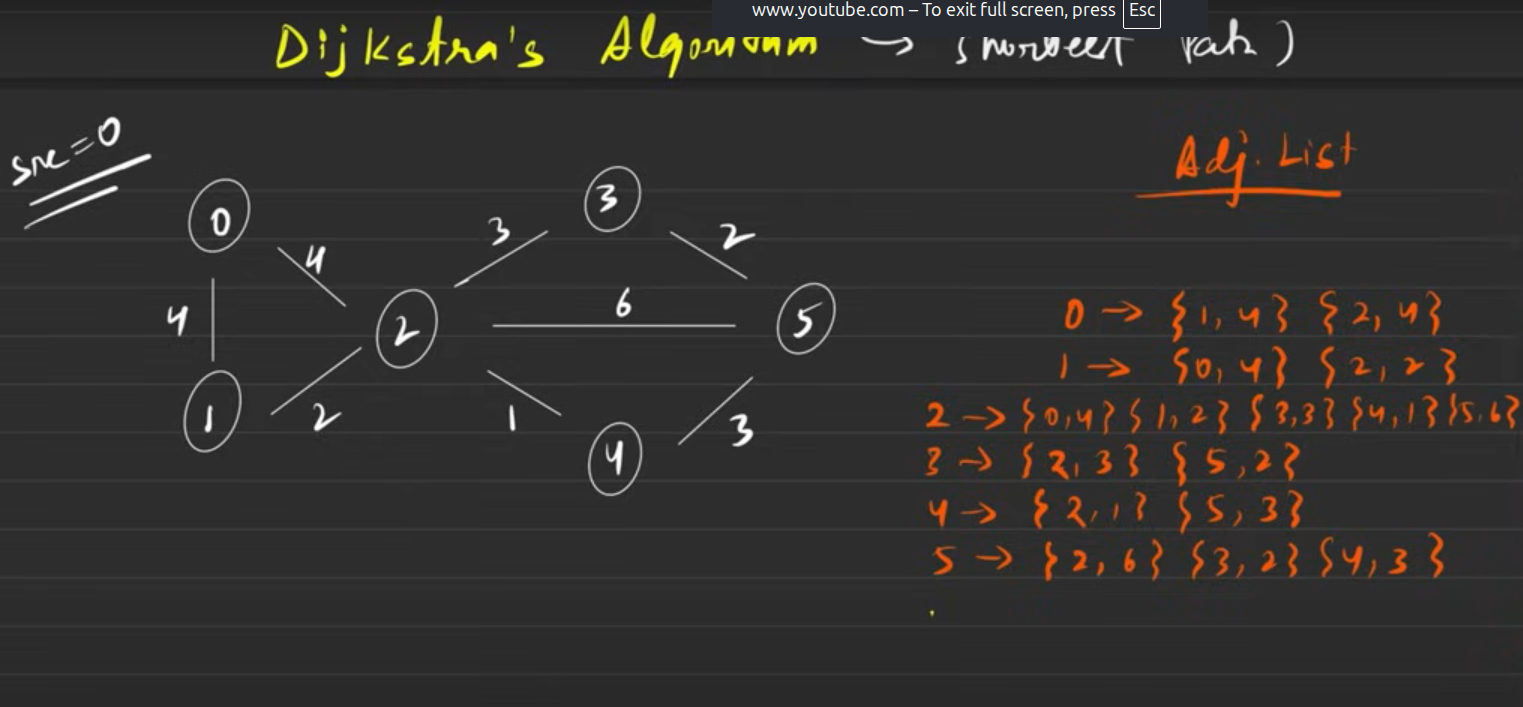 www.youtube.com – To exit full screen, press Esc
Dijkstra's Algorithm → Shortest Path )
src=0
Adj. List
0
4
4
1
2
2
3
3
2
6
5
1
4
3
0 → {1, 4} {2, 4}
1 → {0, 4} {2, 2}
2 → {0,4} {1,2} {3,3} {4,1} {5,6}
3 → {2,3} {5,2}
4 → {2,1} {5,3}
5 → {2,6} {3,2} {4,3}